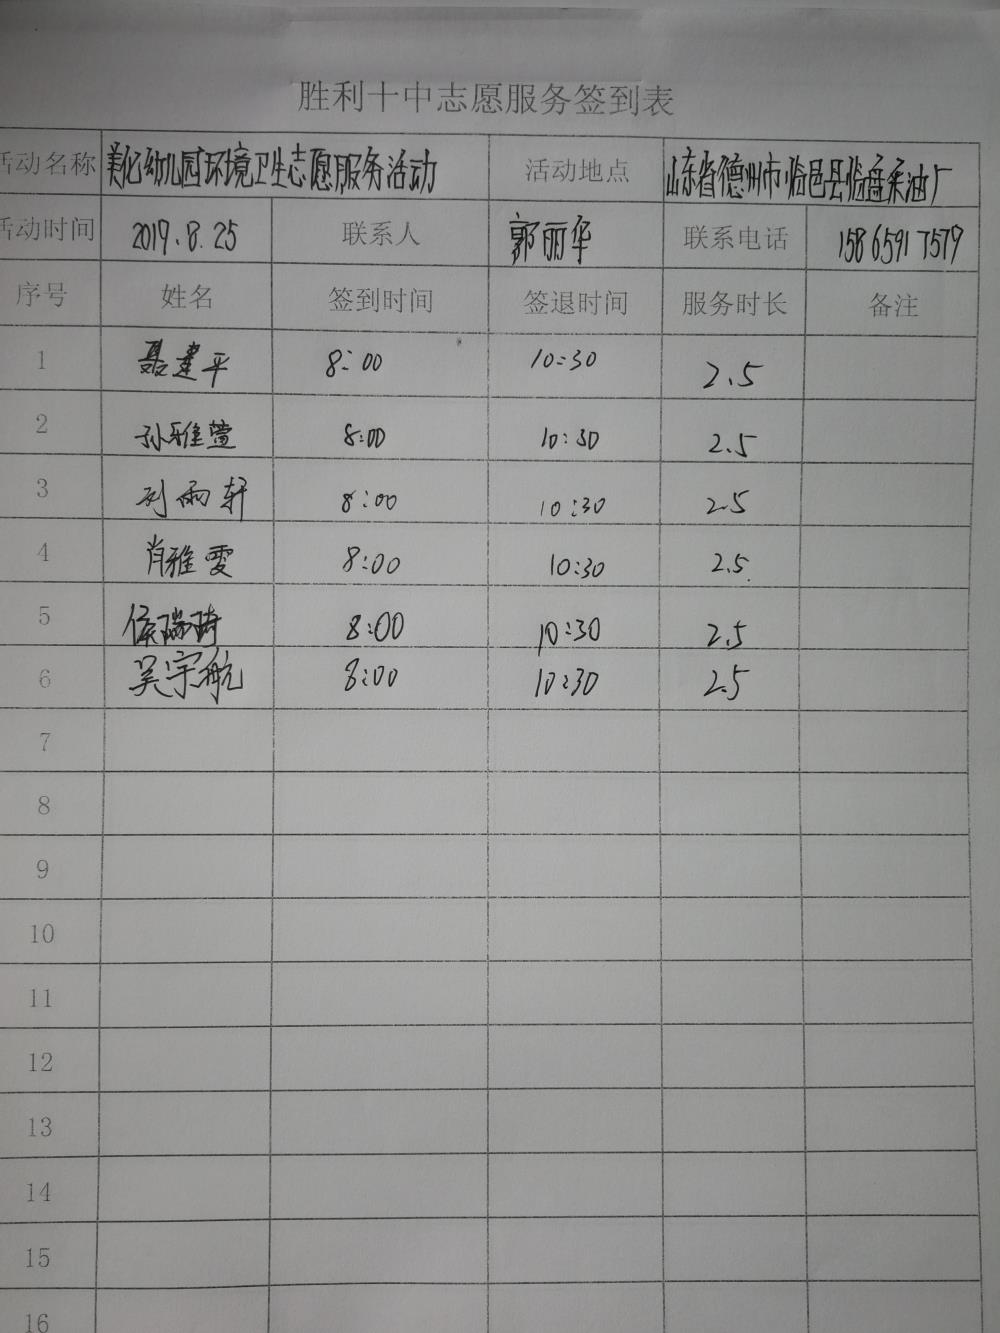 胜利十中志愿服务签到表
活动名称 美忆幼儿园环境卫生志愿服务活动 活动地点 山东省德州市临邑县临盘采油厂
活动时间 2019.8.25 联系人 郭丽华 联系电话 15865917579
序号 姓名 签到时间 签退时间 服务时长 备注
1 聂建平 8:00 10:30 2.5
2 孙雅萱 8:00 10:30 2.5
3 刘雨轩 8:00 10:30 2.5
4 肖雅雯 8:00 10:30 2.5
5 侯瑞琦 8:00 10:30 2.5
6 吴宇航 8:00 10:30 2.5
7
8
9
10
11
12
13
14
15
16